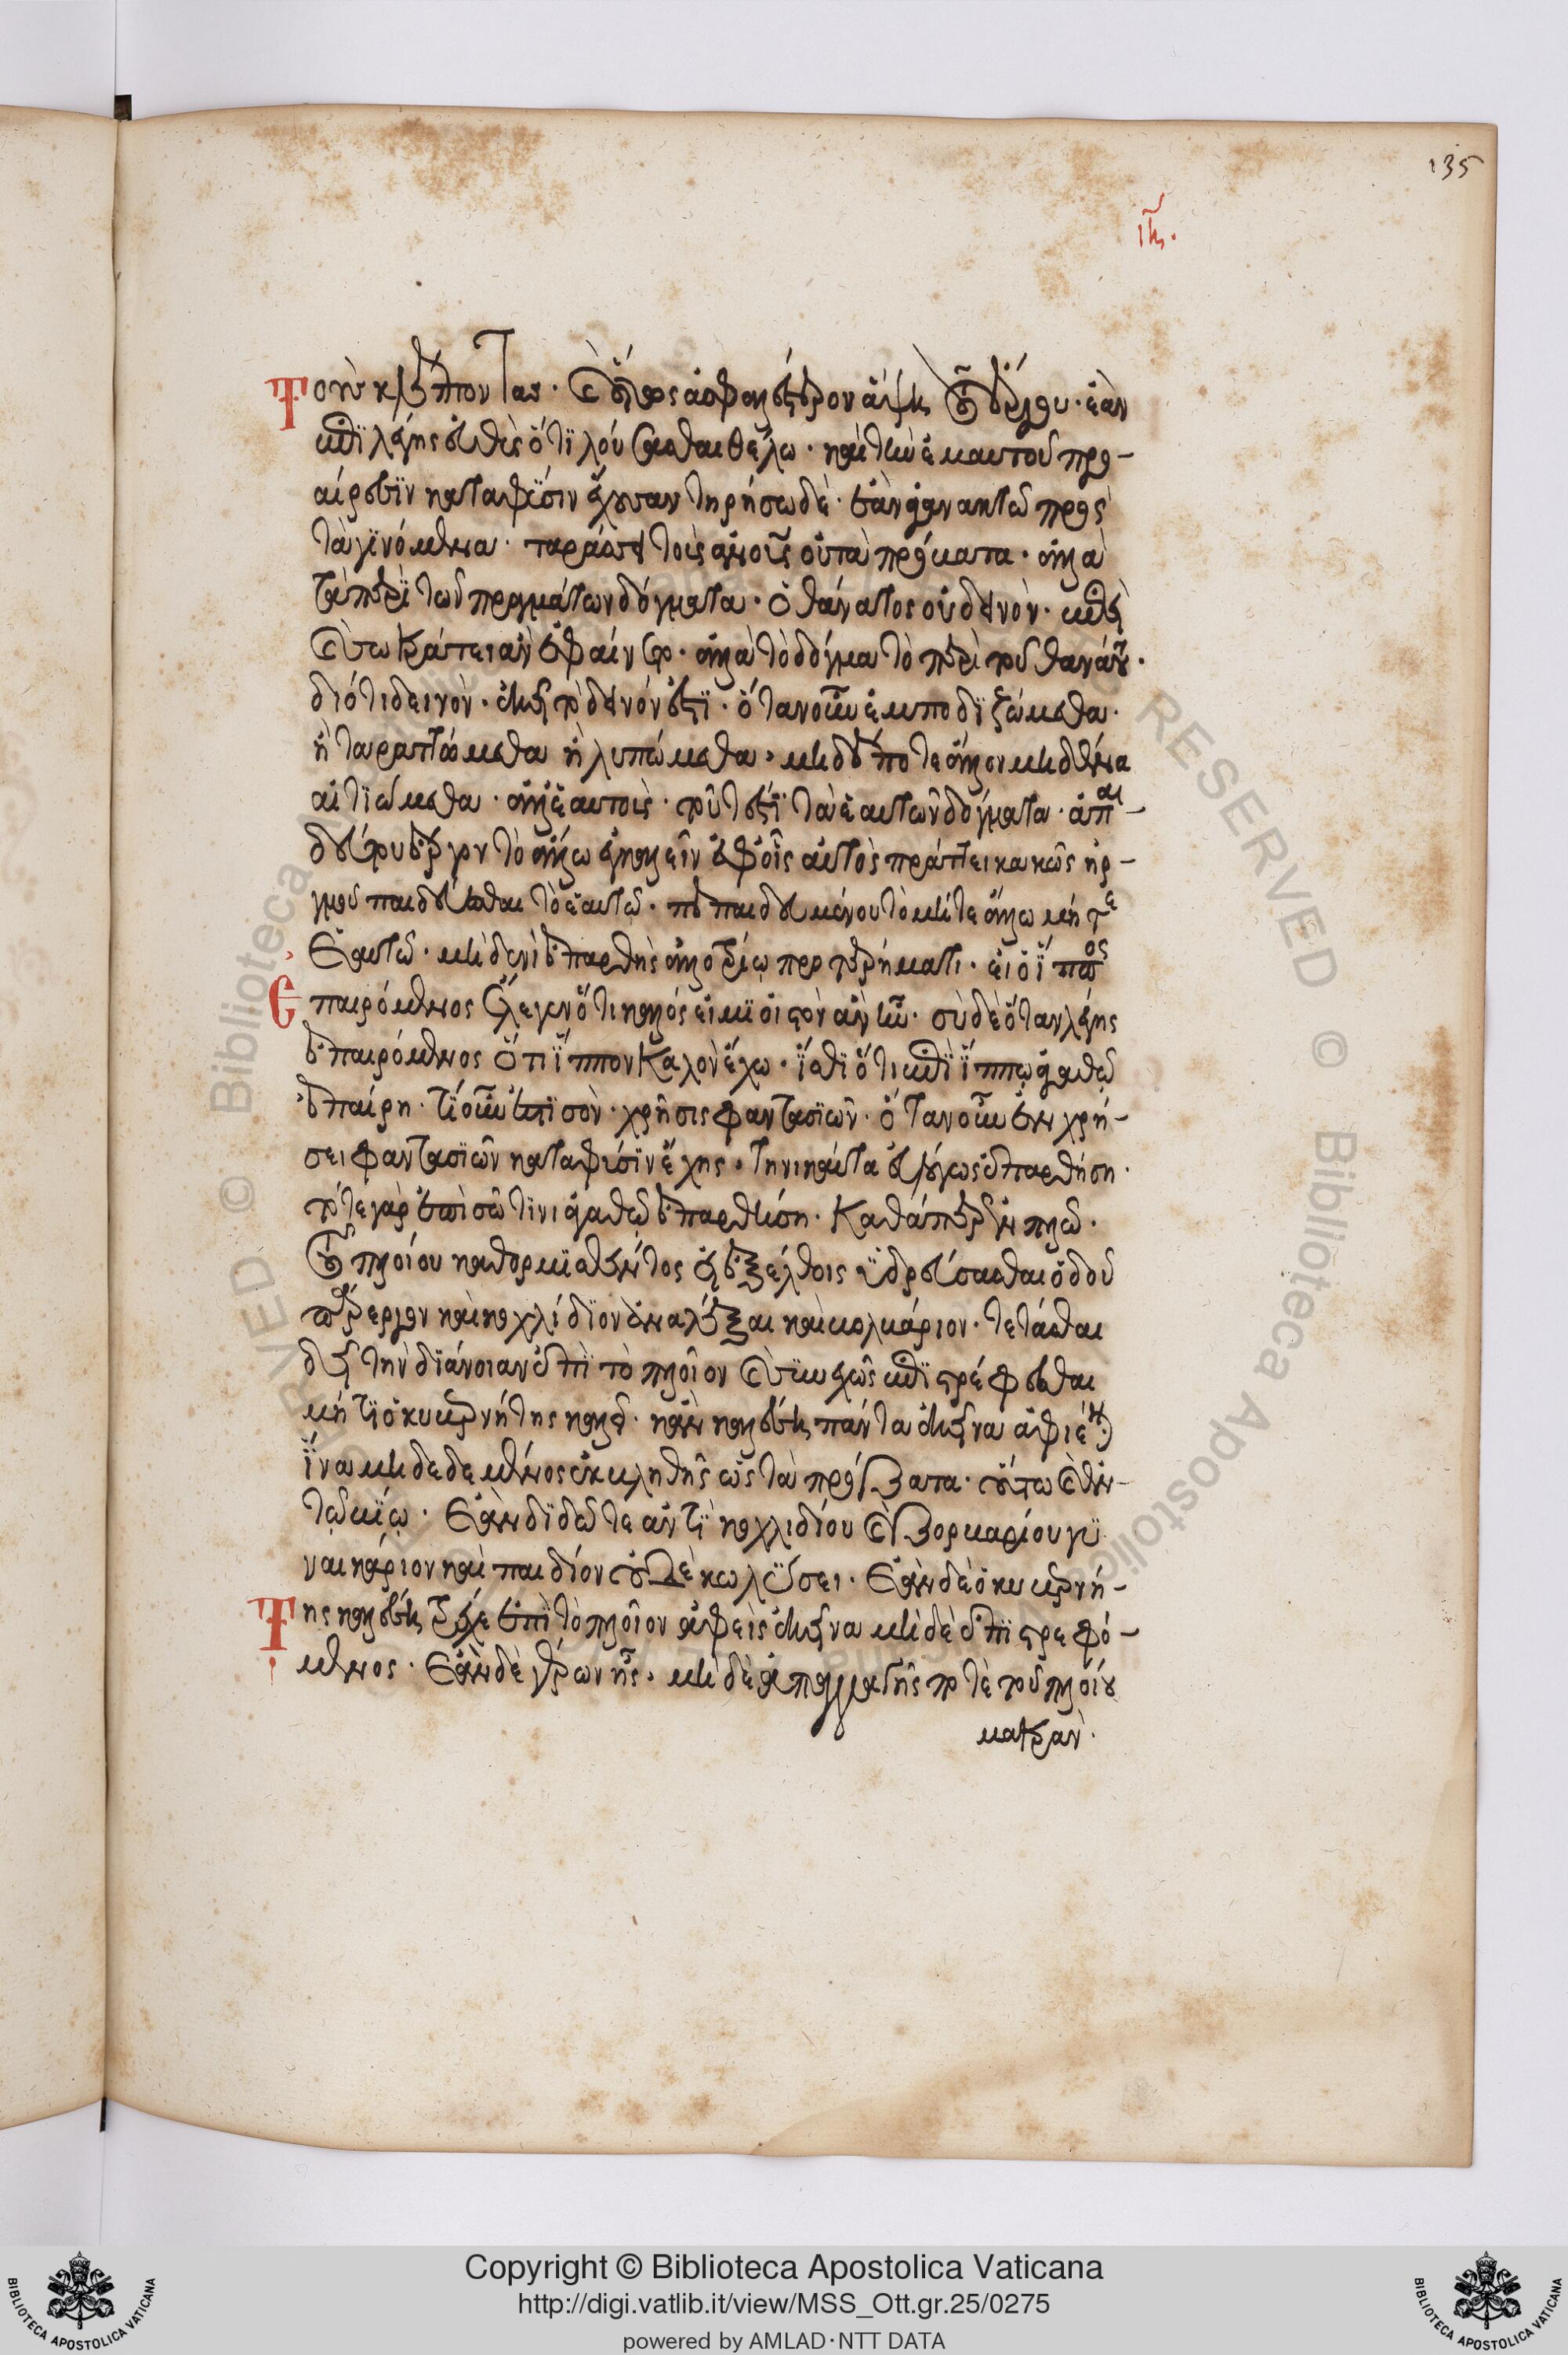 Τοὺς κλέπτοντας. οὕτως ἀσφαλέστερον ἅψη τοῦ ἔργου· ἐὰν
ἐπιλέγης εὐθὺς ὅτι λούσασθαι θέλω· καὶ τὴν ἐμαυτοῦ προ-
αίρεσιν κατα φύσιν ἔχουσαν τηρήσω δὲ· ἐὰν ἀγανακτῶ πρὸς
τὰ γινόμενα· ταράσσει τοὺς ἀνους οὐ τὰ πράγματα· ἀλλὰ
τὰ περὶ τῶν πραγμάτων δόγματα· ὁ θάνατος οὐ δεινὸν· ἐπεὶ
Σωκράτει ἂν ἐφαίνετο· ἀλλὰ τὸ δόγμα τὸ περὶ τοῦ θανάτου·
διότι δεινὸν· ἐκεῖ τὸ δεινόν ἐστι· ὅταν οὖν ἐμποδιζώμεθα·
ἢ ταραττώμεθα ἢ λυπώμεθα· μηδέποτε ἄλλον μηδένα
αἰτιώμεθα· ἀλλ' ἑαυτοὺς· τοῦτ' ἐστὶ τὰ ἑαυτῶν δόγματα· ἀπαι-
δεύτου ἔργον τὸ ἄλλω ἐγκαλεῖν ἐφ' οἷς αὐτὸς πράττει κακῶς ἠρ-
γμου παιδεύεσθαι τὸ ἑαυτῶ· πεπαιδευμένου τὸ μήτε ἄλλω μήτε
ἑαυτῶ· μηδενὶ ἐπαρθῆς ἀλλοτρίω προτερήματι· εἰ ὁ ἵππος
Ἐπαιρόμενος ἔλεγεν ὅτι καλός εἰμι οἰστὸν ἂν ἦν· σὺ δὲ ὅταν λέγης
ἐπαιρόμενος ὅτι ἵππον καλὸν ἔχω· ἴσθι ὅτι ἐπὶ ἵππω ἀγαθῶ
ἐπαίρη· τί οὖν ἐστὶ σὸν· χρῆσις φαντασιῶν· ὅταν οὖν ἐν χρή-
σει φαντασιῶν κατα φύσιν ἔχης· τηνικαῦτα εὐλόγως ἐπαρθήση·
τότε γὰρ ἐπὶ σῶ τινι ἀγαθῶ ἐπαρθήση· καθάπερ ἐν πλῶ·
τοῦ πλοίου καθορμισθέντος εἰ ἐξέλθοις ὑδρεύσασθαι ὁδοῦ
πάρεργον καὶ κοχλίδιον ἀναλέξαι καὶ κολμάριον· τετάσθαι
δεῖ τὴν διάνοιαν ἐπὶ τὸ πλοῖον συνεχῶς ἐπιστρέφεσθαι
μή τι ὁ κυβερνήτης καλεῖ· κἂν καλέση πάντα ἐκεῖνα ἀφιέναι
ἵνα μὴ δεδεμένος ἐκκληθῆς ὡς τὰ πρόβατα· οὕτω ἐν
τῶ βίω· ἐὰν διδῶται ἀντὶ κοχλιδίου βορμαρίου γυ
ναικάριον καὶ παιδίον οὐδὲ κωλύσει· ἐὰν δὲ ὁ κυβερνή-
Της καλέση τρέχε ἐπὶ τὸ πλοῖον ἀφεὶς ἐκεῖνα μηδὲ ἐπιστρεφό-
μενος· ἐὰν δὲ γέρων ἦς· μηδὲ ἀπαλλαγῆς ποτὲ τοῦ πλοίου
μακρὰν·
135
Copyright © Biblioteca Apostolica Vaticana
http://digi.vatlib.it/view/MSS_Ott.gr.25/0275
powered by AMLAD·NTT DATA